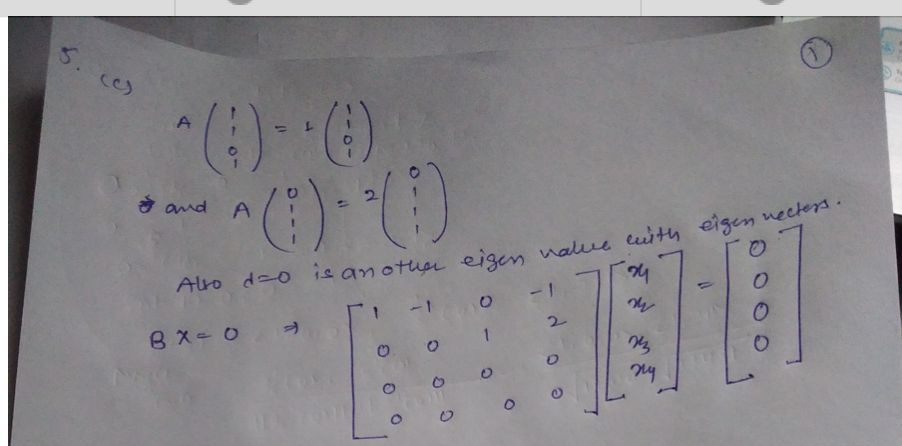 5.
(c)
1
A (1 1 0 1) = 1 (1 1 0 1)
and A (0 1 1 1) = 2 (0 1 1 1)
Also d=0 is another eigen value with eigen vectors.
B X = 0 ⇒ [1 -1 0 -1] [x1] = [0]
[0 0 1 2] [x2] [0]
[0 0 0 0] [x3] [0]
[0 0 0 0] [x4] [0]